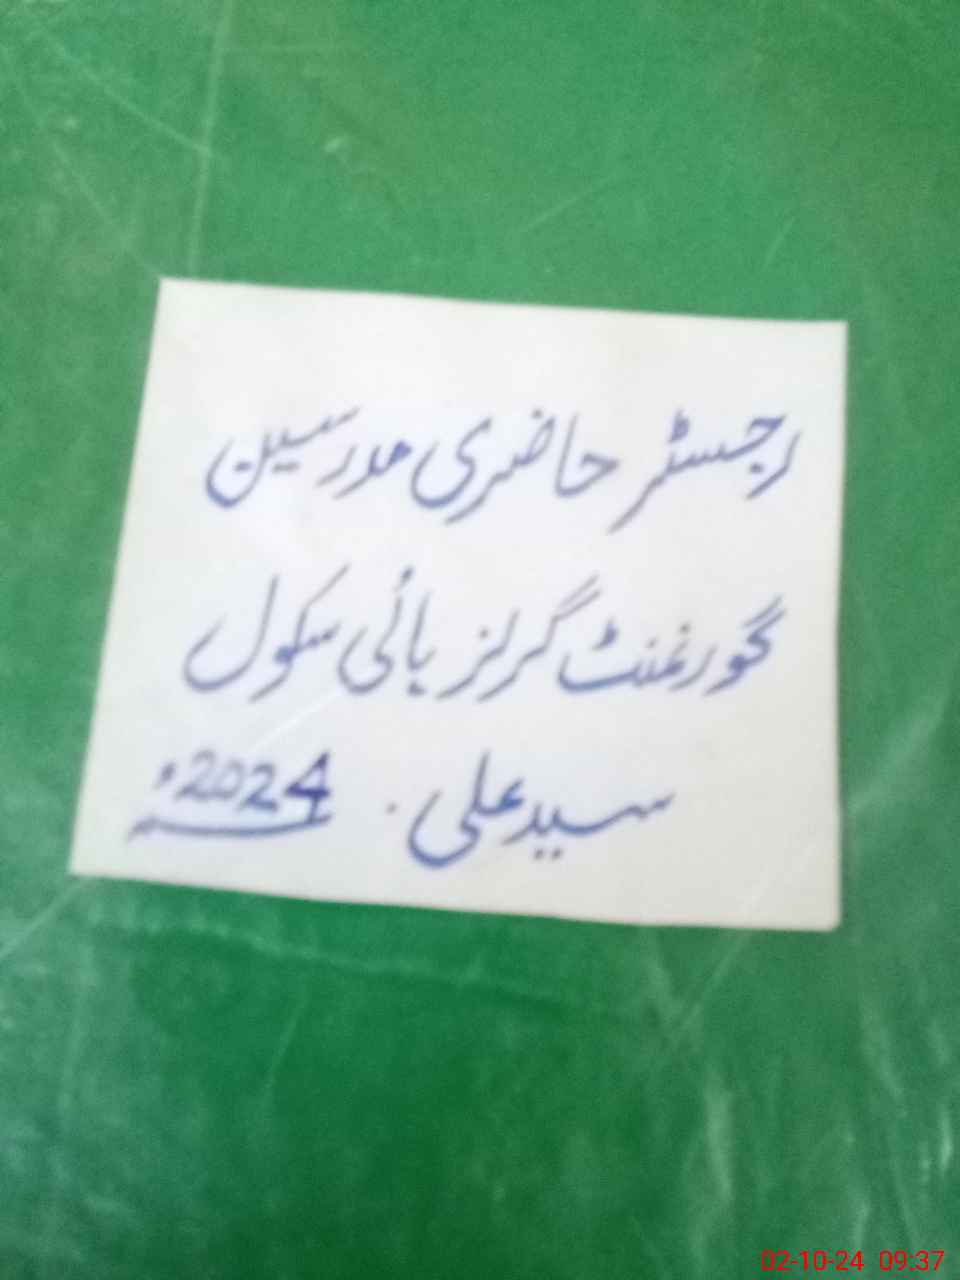 رجسٹر حاضری مدرسین
گورنمنٹ گرلز ہائی سکول
سید علی . 2024ء
02-10-24 09:37